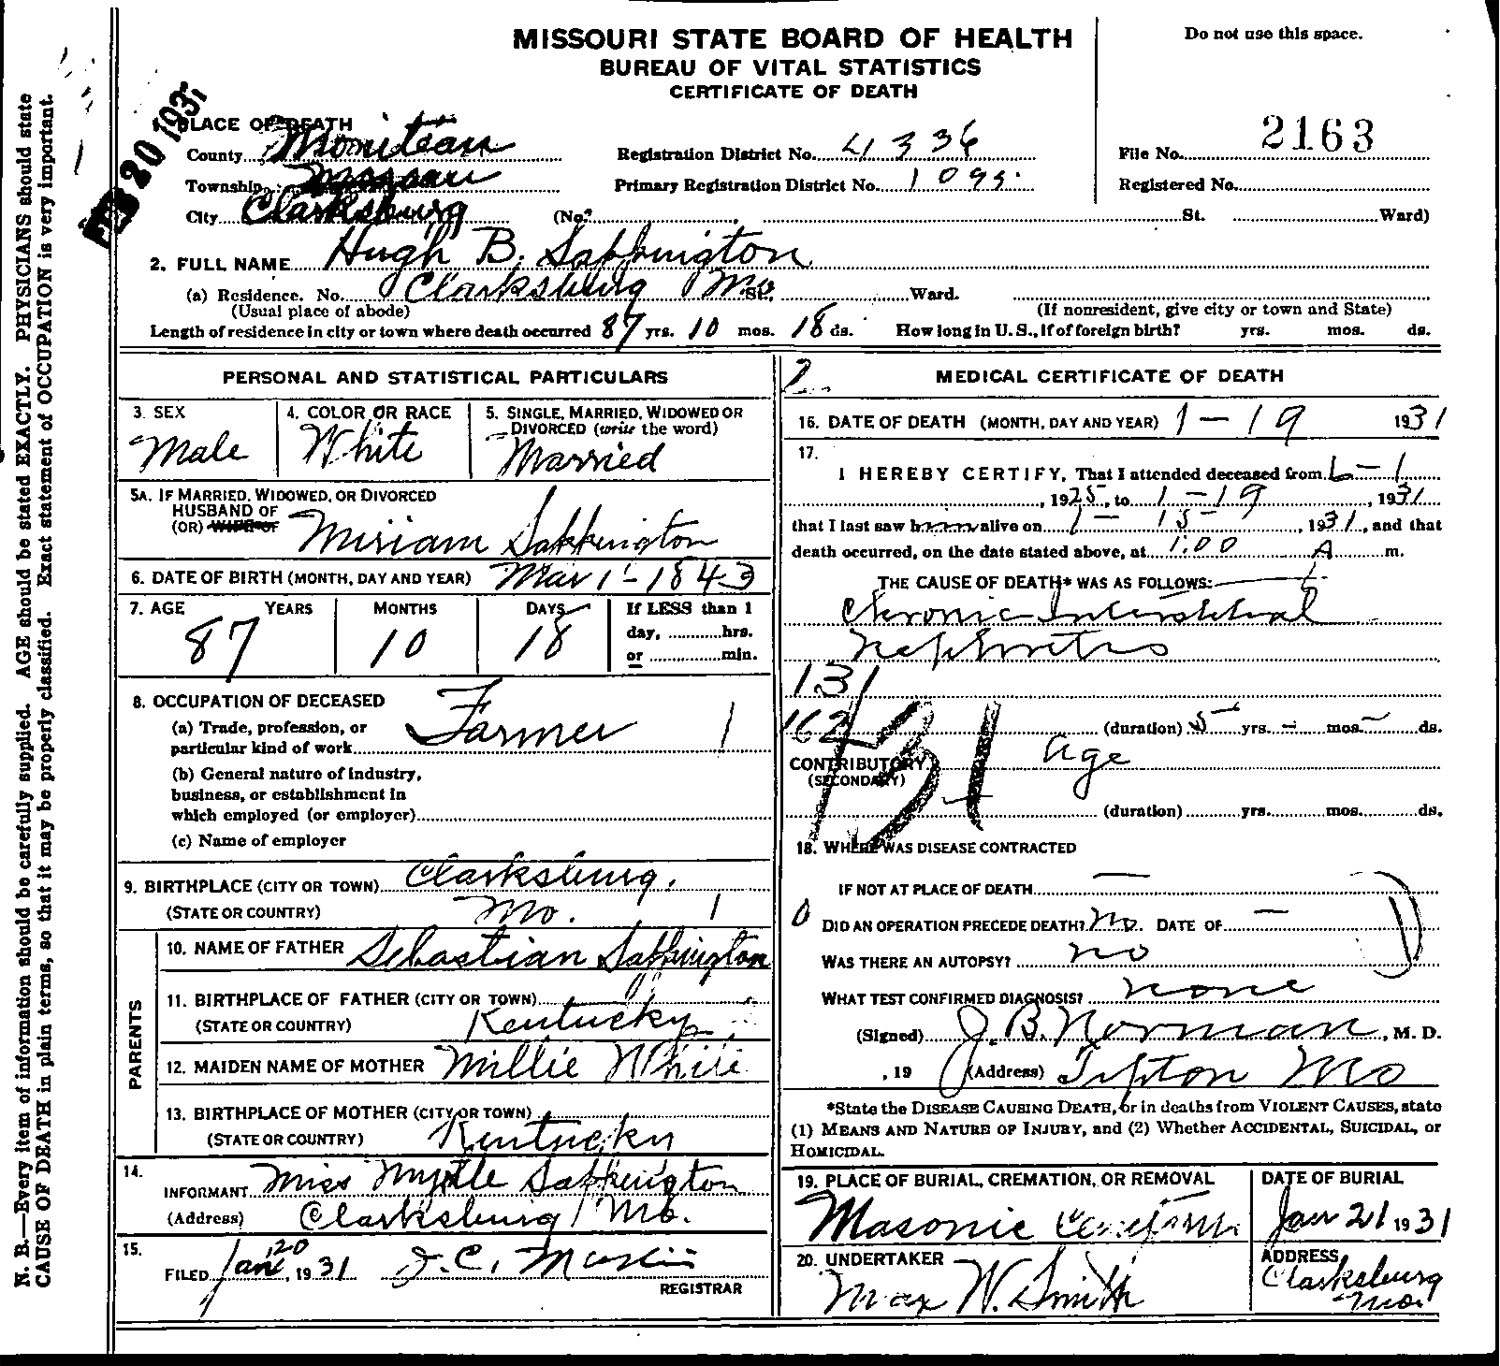 MISSOURI STATE BOARD OF HEALTH
BUREAU OF VITAL STATISTICS
CERTIFICATE OF DEATH
Do not use this space.
FEB 20 1931
PLACE OF DEATH
County Moniteau
Registration District No. 4336
File No. 2163
Township
Primary Registration District No. 1095
Registered No.
City Clarksburg (No. , St. Ward)
2. FULL NAME Hugh B. Sappington
(a) Residence. No. Clarksburg Mo St. Ward.
(Usual place of abode) (If nonresident, give city or town and State)
Length of residence in city or town where death occurred 87 yrs. 10 mos. 18 ds. How long in U.S., if of foreign birth? yrs. mos. ds.
PERSONAL AND STATISTICAL PARTICULARS
3. SEX Male
4. COLOR OR RACE White
5. SINGLE, MARRIED, WIDOWED OR DIVORCED (write the word) Married
5A. IF MARRIED, WIDOWED, OR DIVORCED
HUSBAND OF
(OR) WIFE OF Miriam Sappington
6. DATE OF BIRTH (MONTH, DAY AND YEAR) Mar 1 - 1843
7. AGE YEARS MONTHS DAYS If LESS than 1
87 10 18 day, hrs.
or min.
8. OCCUPATION OF DECEASED
(a) Trade, profession, or
particular kind of work Farmer 1
(b) General nature of industry,
business, or establishment in
which employed (or employer)
(c) Name of employer
9. BIRTHPLACE (CITY OR TOWN) Clarksburg,
(STATE OR COUNTRY) Mo. 1
PARENTS
10. NAME OF FATHER Sebastian Sappington
11. BIRTHPLACE OF FATHER (CITY OR TOWN)
(STATE OR COUNTRY) Kentucky
12. MAIDEN NAME OF MOTHER Millie White
13. BIRTHPLACE OF MOTHER (CITY OR TOWN)
(STATE OR COUNTRY) Kentucky
14.
INFORMANT Miss Myrtle Sappington
(Address) Clarksburg Mo.
15.
FILED Jan 20, 1931 J. C.
REGISTRAR
2.
MEDICAL CERTIFICATE OF DEATH
16. DATE OF DEATH (MONTH, DAY AND YEAR) 1 - 19 1931
17.
I HEREBY CERTIFY, That I attended deceased from 6-1
, 1925, to 1-19, 1931
that I last saw alive on 1 - 15 - , 1931, and that
death occurred, on the date stated above, at 1:00 A m.
THE CAUSE OF DEATH* WAS AS FOLLOWS:
Chronic Interstitial
Nephritis
131
162
131
(duration) 5 yrs. - mos. - ds.
CONTRIBUTORY Age
(SECONDARY)
(duration) yrs. mos. ds.
18. WHERE WAS DISEASE CONTRACTED
IF NOT AT PLACE OF DEATH —
0 DID AN OPERATION PRECEDE DEATH? No. DATE OF —
WAS THERE AN AUTOPSY? no
WHAT TEST CONFIRMED DIAGNOSIS? none
(Signed) J. B. Norman, M. D.
, 19 (Address) Tipton Mo
*State the DISEASE CAUSING DEATH, or in deaths from VIOLENT CAUSES, state
(1) MEANS AND NATURE OF INJURY, and (2) Whether ACCIDENTAL, SUICIDAL, or
HOMICIDAL.
19. PLACE OF BURIAL, CREMATION, OR REMOVAL
Masonic
DATE OF BURIAL
Jan 21 1931
20. UNDERTAKER
Max W. Smith
ADDRESS
Clarksburg
Mo.
N. B.—Every item of information should be carefully supplied. AGE should be stated EXACTLY. PHYSICIANS should state
CAUSE OF DEATH in plain terms, so that it may be properly classified. Exact statement of OCCUPATION is very important.